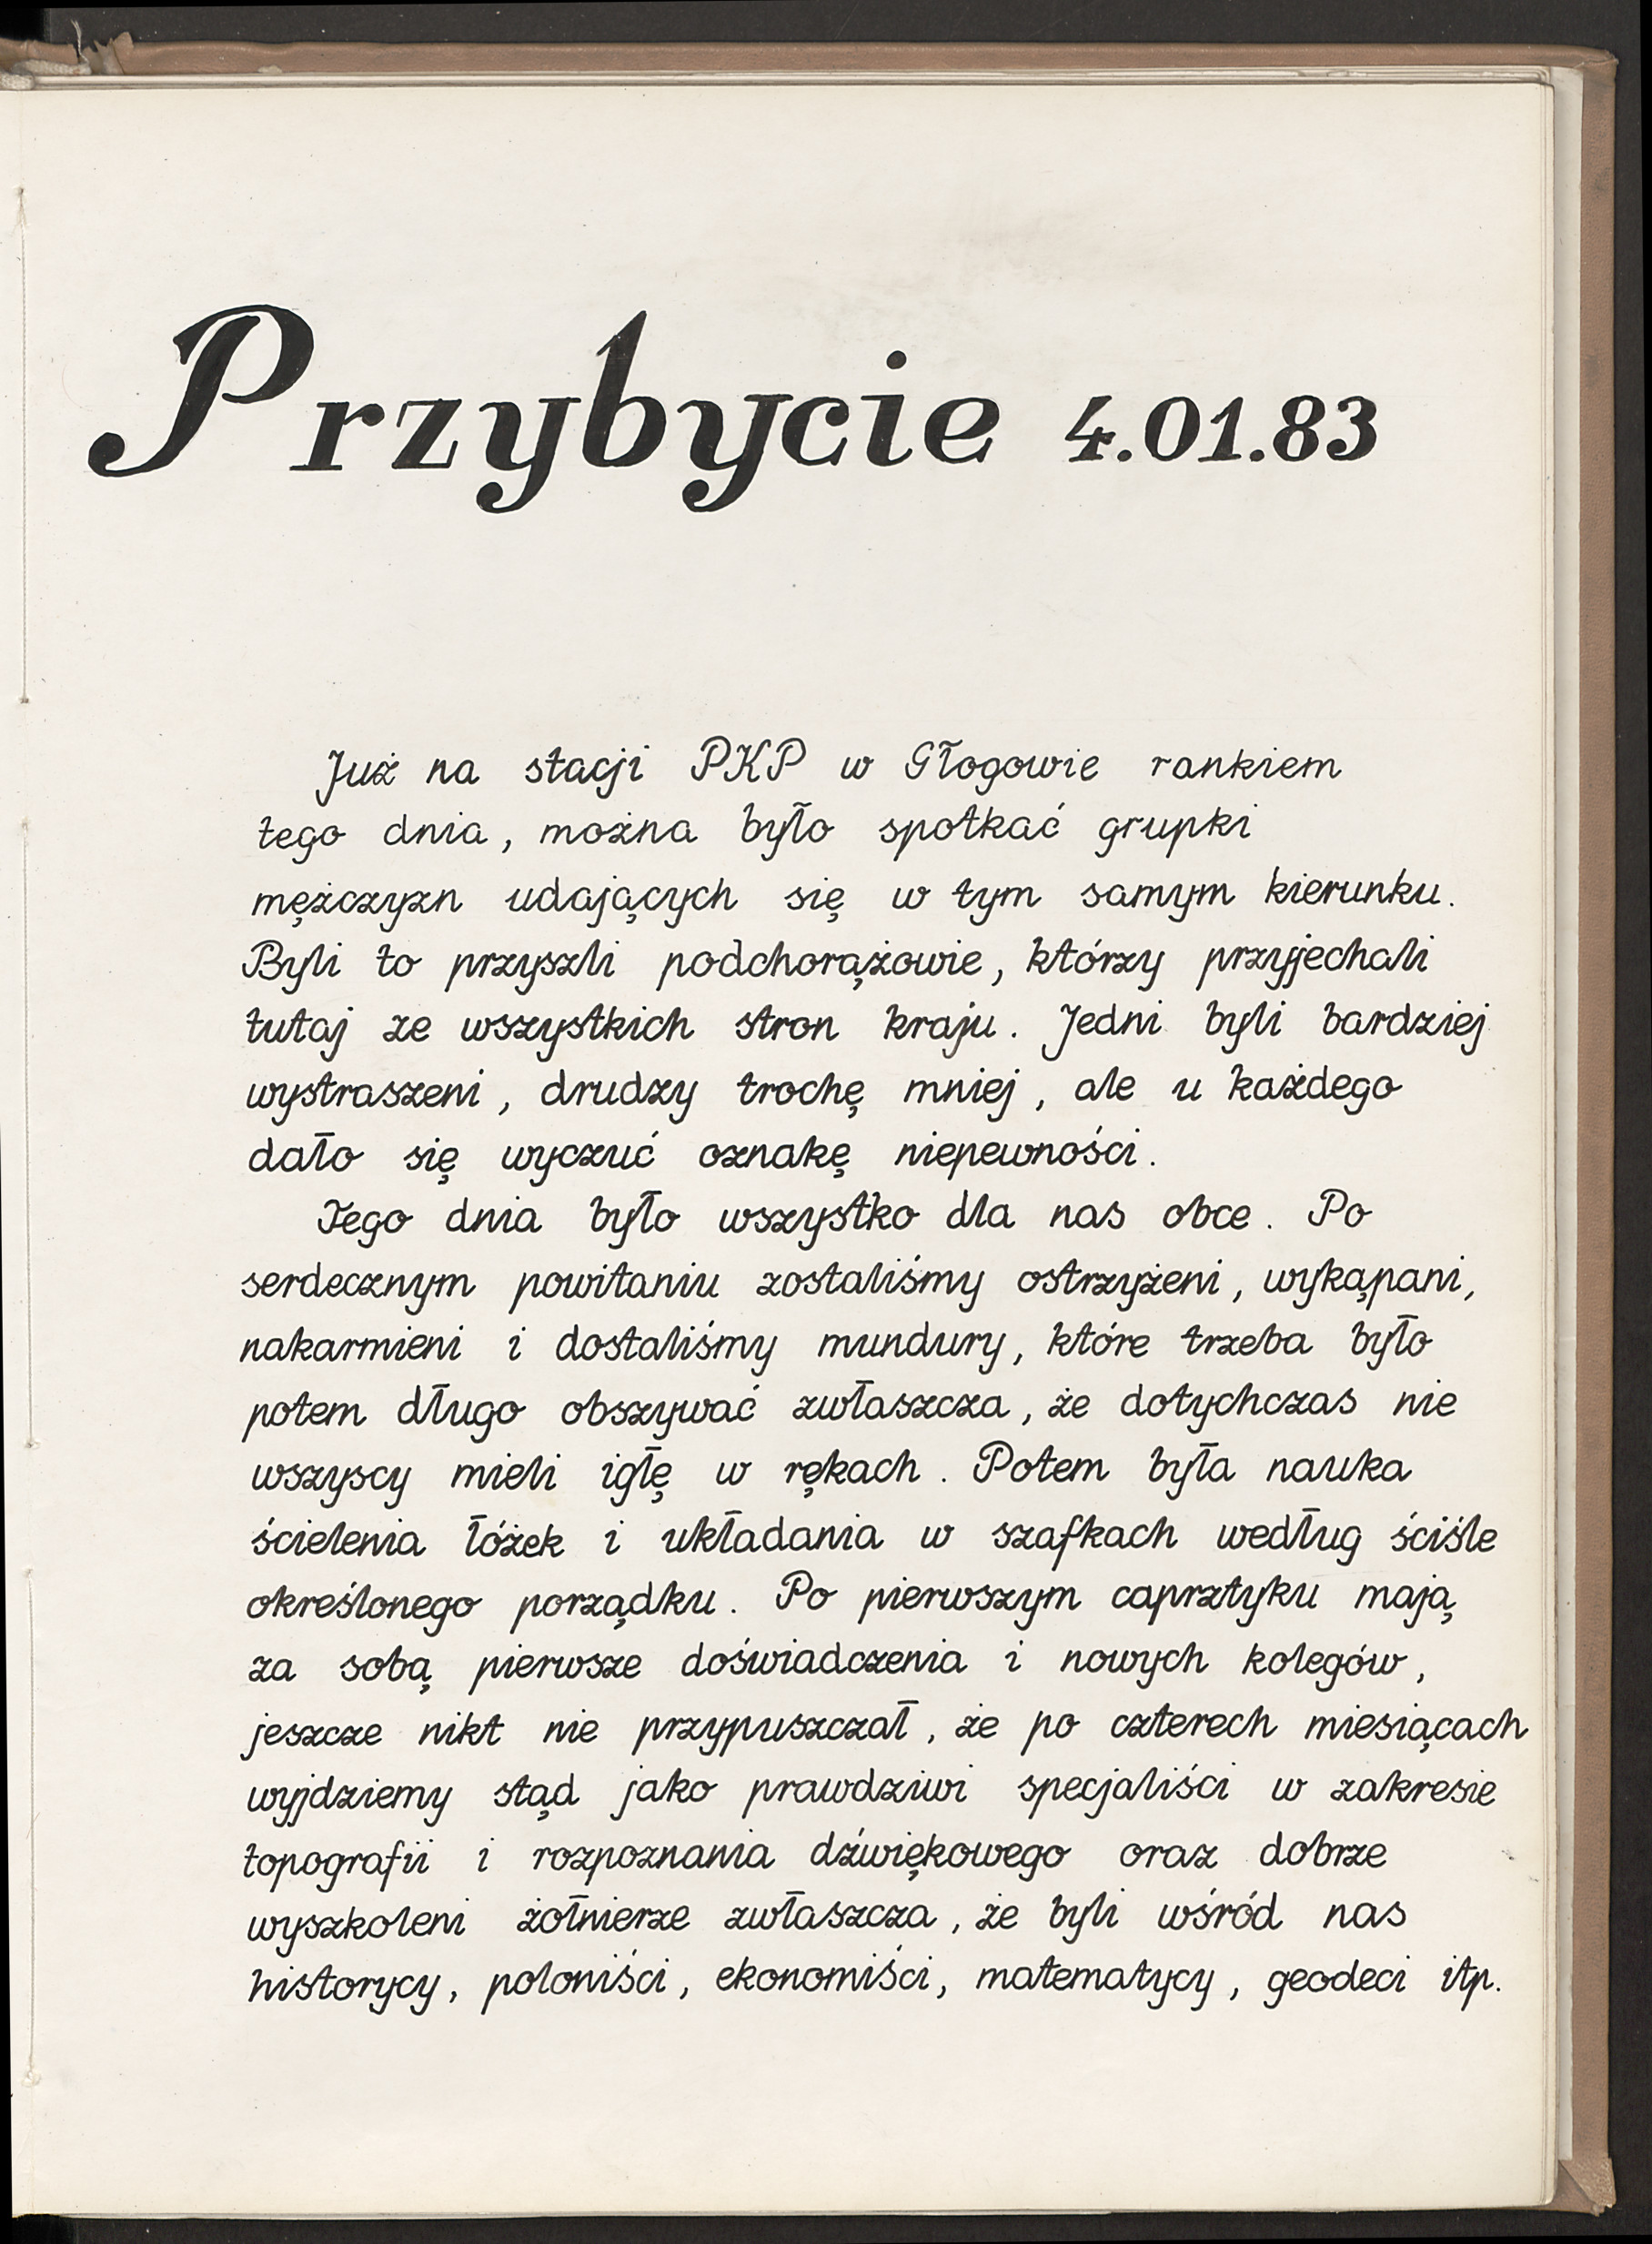 Przybycie 4.01.83
Już na stacji PKP w Głogowie rankiem
tego dnia, można było spotkać grupki
mężczyzn udających się w tym samym kierunku.
Byli to przyszli podchorążowie, którzy przyjechali
tutaj ze wszystkich stron kraju. Jedni byli bardziej
wystraszeni, drudzy trochę mniej, ale u każdego
dało się wyczuć oznakę niepewności.
Tego dnia było wszystko dla nas obce. Po
serdecznym powitaniu zostaliśmy ostrzyżeni, wykąpani,
nakarmieni i dostaliśmy mundury, które trzeba było
potem długo obszywać zwłaszcza, że dotychczas nie
wszyscy mieli igłę w rękach. Potem była nauka
ścielenia łóżek i układania w szafkach według ściśle
określonego porządku. Po pierwszym caprztyku mają
za sobą pierwsze doświadczenia i nowych kolegów,
jeszcze nikt nie przypuszczał, że po czterech miesiącach
wyjdziemy stąd jako prawdziwi specjaliści w zakresie
topografii i rozpoznania dźwiękowego oraz dobrze
wyszkoleni żołnierze zwłaszcza, że byli wśród nas
historycy, poloniści, ekonomiści, matematycy, geodeci itp.